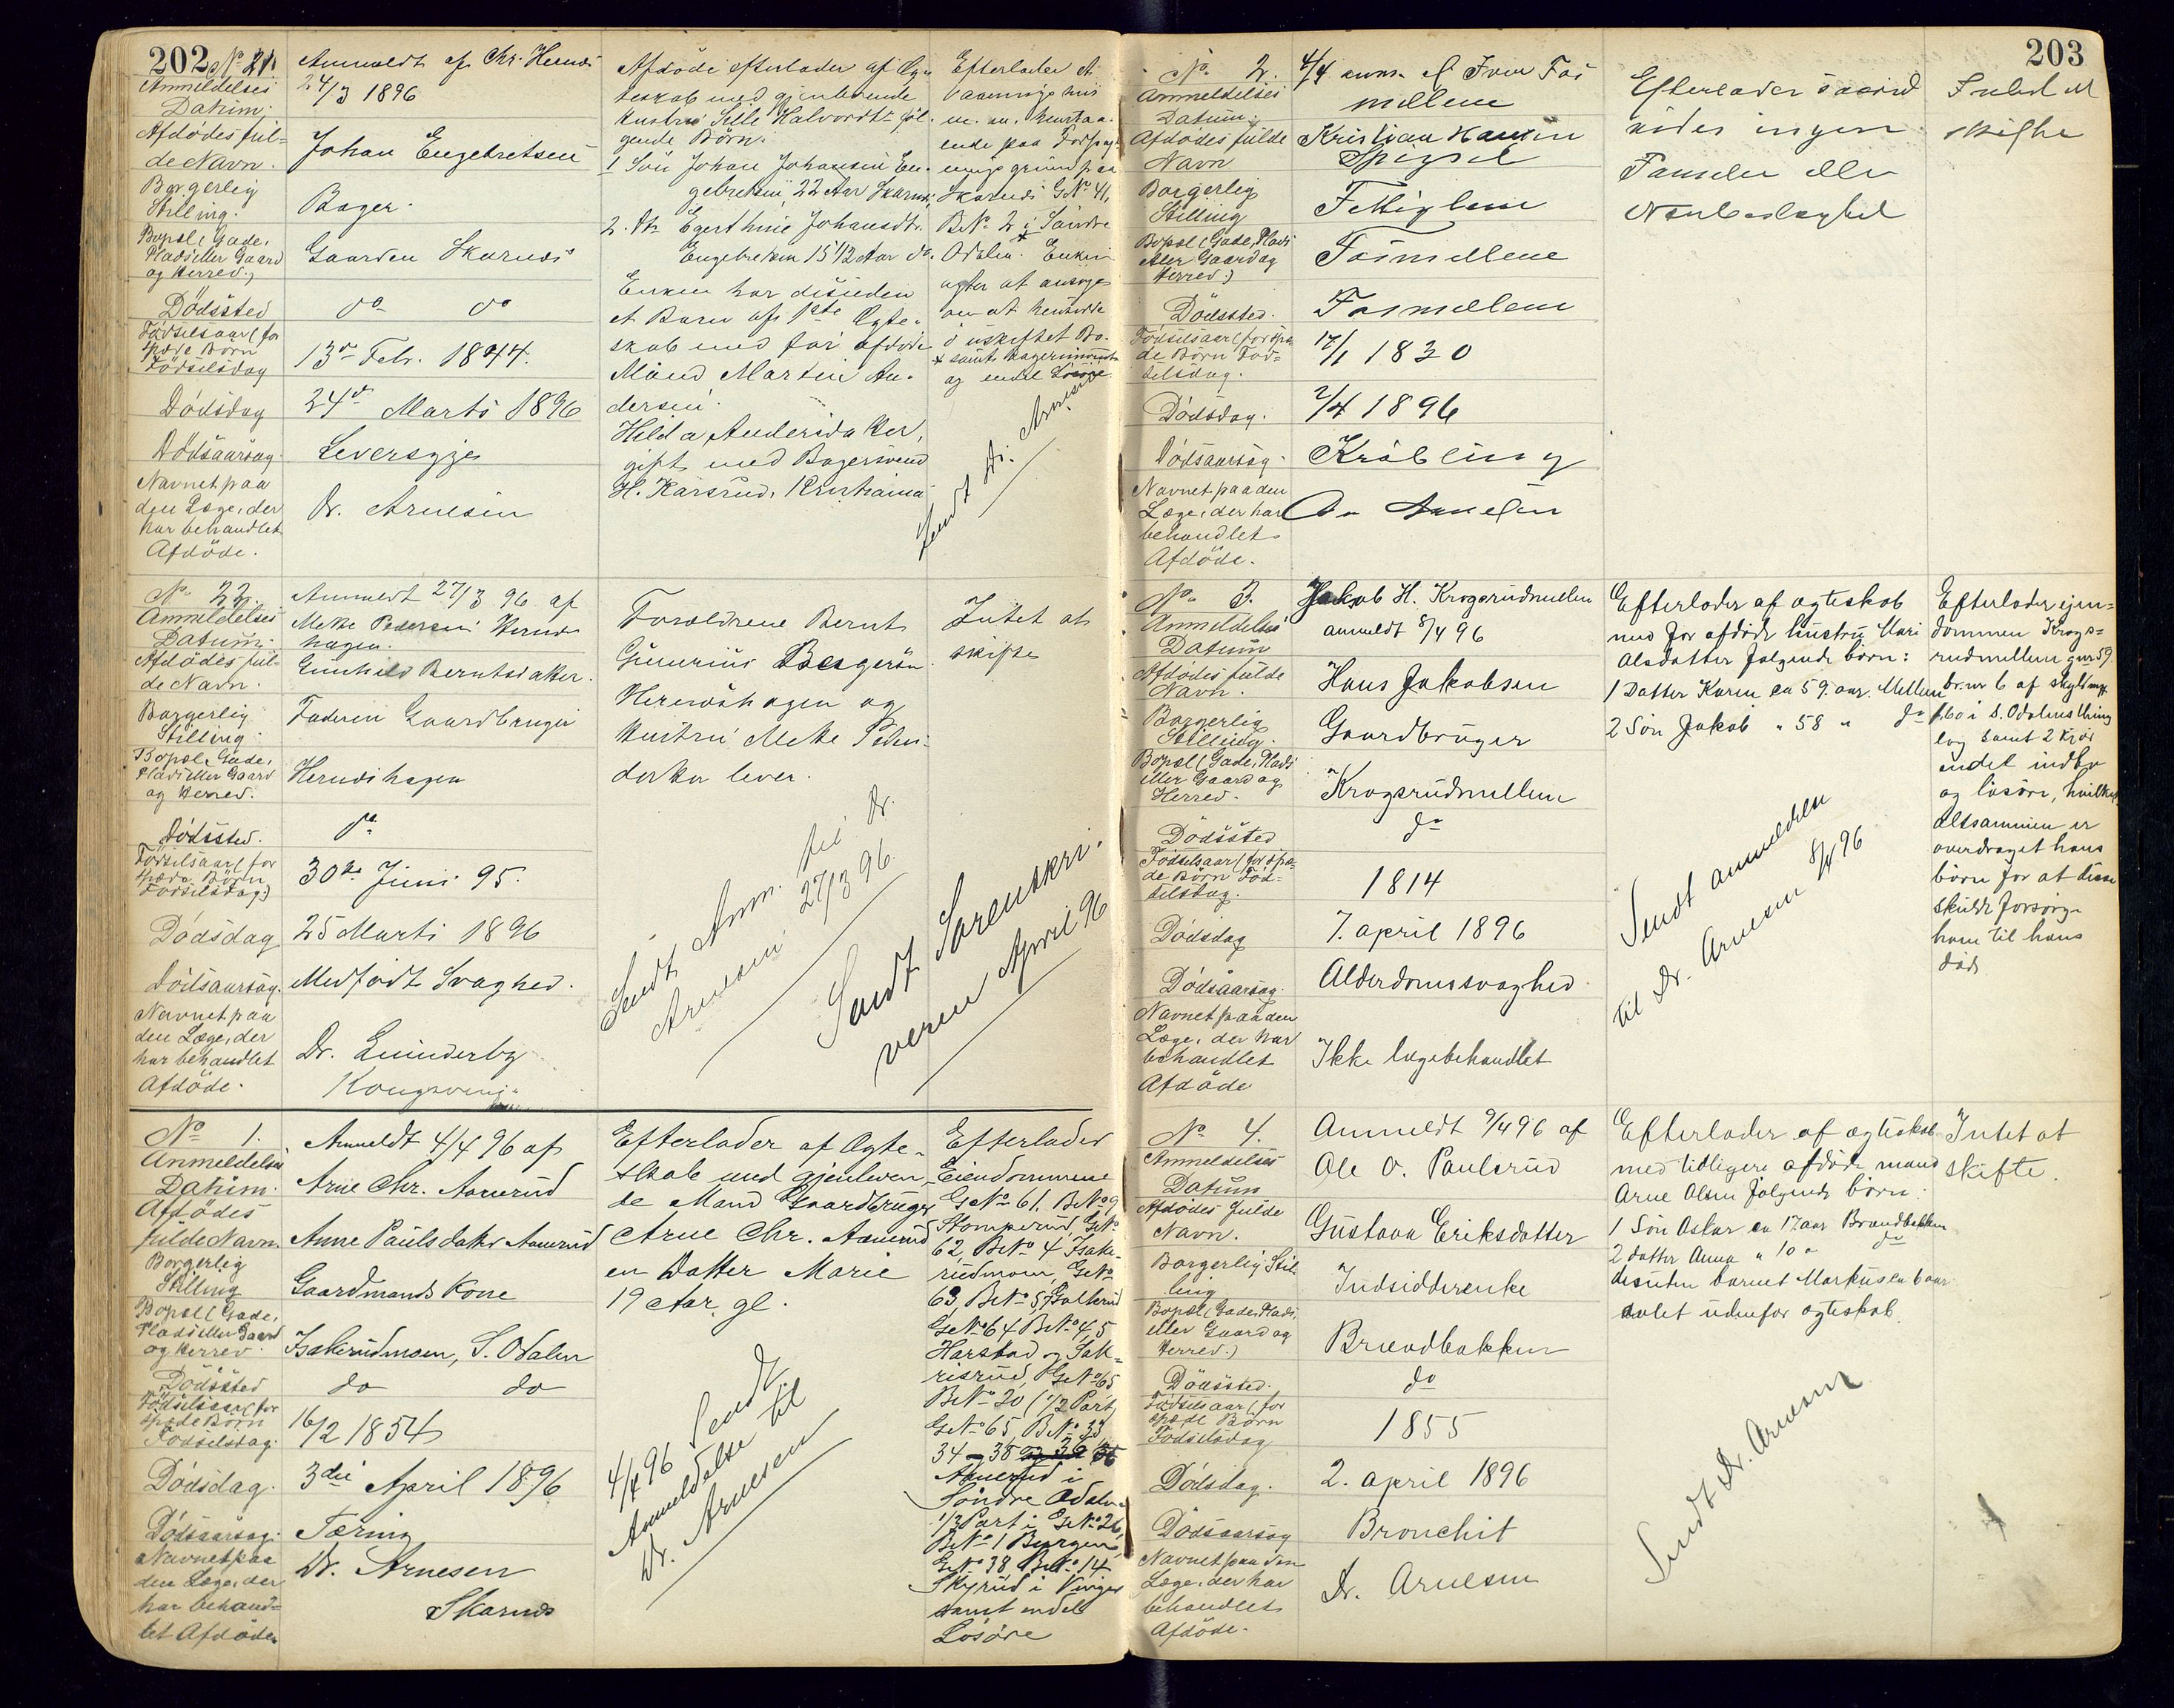 202
No 21.
Anmeldelses
Datum.
Anmeldt af Chr. Hernæs
24/3 1896
Afdödes ful-
de Navn.
Johan Engebretsen
Borgerlig
Stilling.
Bager.
Bopæl (Gade,
Plads eller Gaard
og Herred.)
Gaarden Skarnæs
Dödssted
do do
Födselsaar (for
spæde Börn
Födselsdag
13de Febr. 1844.
Dödsdag
24de Marts 1896
Dödsaarsag
Leversyge
Navnet paa
den Læge, der
har behandlet
Afdöde.
Dr. Arnesen
Afdöde efterlader af Æg-
teskab med gjenlevende
Hustru Sille Halvorsdtr föl-
gende Börn:
1 Sön Johan Johansen En-
gebretsen, 22 Aar Skarnæs,
2. Dtr Egerthine Johansdtr.
Engebretsen 15 1/2 Aar do.
Enken har desuden
et Barn af 1ste Ægte-
skab med før afdöde
Mand Martin An-
dersen.
Hilda Andersdatter,
gift med Bagersvend
H. Karsrud, Kristiania
Efterlader et
Vaaningshus
m. m. henstaa-
ende paa Forpag-
tningsgrund paa
Skarnæs G.No 41,
B.No 2 i Söndre
Odalen. Enken
agter at ansöge
om at hensidde
i uskiftet Bo.
* samt Bagerinventar
og endel Lösöre.
Sendt Dr. Arnesen
No 22.
Anmeldelses
Datum.
Anmeldt 27/3 96 af
Mette Pedersen Hernæs-
hagen.
Afdödes ful-
de Navn.
Gunhild Berntsdatter.
Borgerlig
Stilling.
Faderen Gaardbruger
Bopæl, Gade,
Plads eller Gaard
og Herred.
Hernæshagen
Dödssted.
do
Födselsaar (for
spæde Börn
Födselsdag)
30te Juni 95.
Dödsdag
25 Marts 1896
Dödsaarsag.
Medfödt Svaghed.
Navnet paa
den Læge, der
har behandlet
Afdöde.
Dr.
Kongsvinger
Forældrene Bernt
Gunerius Bergersen
Hernæshagen og
Hustru Mette Peders-
datter lever.
Intet at
skifte
Sendt Anm. til Dr.
Arnesen 27/3 96.
Sendt Sorenskri-
veren April 96
No 1.
Anmeldelses
Datum.
Anmeldt 4/4 96 af
Arne Chr. Aamerud
Afdödes
fulde Navn.
Anne Paulsdatter Aamerud
Borgerlig
Stilling
Gaardmands Kone
Bopæl (Gade,
Plads eller Gaard
og Herred.
Isakerudmoen, S. Odalen
Dödssted
do do
Födselsaar (for
spæde Börn
Födselsdag.
16/2 1854
Dödsdag.
3die April 1896
Dödsaarsag.
Tæring
Navnet paa
den Læge, der
har behand-
let Afdöde.
Dr. Arnesen
Skarnæs
Efterlader af Ægte-
skab med gjenleven-
de Mand Gaardbruger
Arne Chr. Aamerud
en Datter Marie
19 Aar gl.
4/4 96 Sendt
Anmeldelse til
Dr. Arnesen
Efterlader
Eiendommene
G.No 61. B.No 9
Stomperud, G.No
62, B.No 4 Isake-
rudmoen, G.No
63, B.No 5, Galterud
G.No 64 B.No 4, 5
Harstad og Sak-
risrud, G.No 65
B.No 20 (1/2 Part)
G.No 65, B.No 33
34 38
Aamerud i
Söndre Odalen
1/2 Part i G.No 26,
B.No 1 Burgem,
G.No 38 B.No 14
Skyrud i Vinger
samt endel
Lösöre
203
No 2.
Anmeldelses
Datum.
4/4 anm. af Fosmellene
Afdödes fulde
Navn
Kristian Hansen
Borgerlig
Stilling
Fattiglem
Bopæl (Gade, Plads
eller Gaard og
Herred.)
Fosmellene
Dödssted.
Fosmellene
Födselsaar (for spæ-
de Börn Föd-
selsdag.
17/1 1820
Dödsdag.
2/4 1896
Dödsaarsag.
Kræbling
Navnet paa den
Læge, der har
behandlet
Afdöde.
Dr Arnesen
Efterlader saavid
vides ingen
Familie eller
Nærbeslægtet
Intet at
skifte
No 3.
Anmeldelses
Datum
Jakob H. Krogsrudmellem
anmeldt 8/4 96
Afdödes fulde
Navn.
Hans Jakobsen
Borgerlig
Stilling.
Gaardbruger
Bopæl (Gade, Plads
eller Gaard og
Herred.
Krogsrudmellem
Dödssted
do
Födselsaar (for spæ-
de Börn Föd-
selsdag.
1814
Dödsdag
7. april 1896
Dödsaarsag.
Alderdomssvaghed
Navnet paa den
Læge, der har
behandlet
Afdöde
Ikke lægebehandlet
Efterlader af ægteskab
med før afdøde hustru Mari
Olsdatter følgende børn:
1 Datter Karen ca 59 aar. Mellem
2 Søn Jakob " 58 " do
Sendt anmeldelse
til Dr. Arnesen 8/4 96
Efterlader ejen-
dommen Krogs-
rudmellem gnr 59
br.nr 6 af skyld mk
1,60 i S. Odalens thing
lag samt 2 kjør
endel indbo
og løsøre, hvilket
altsammen er
overdraget hans
børn for at disse
skulde forsørge
ham til hans
død.
No 4.
Anmeldelses
Datum
Anmeldt 9/4 96 af
Ole O. Paulsrud
Afdödes fulde
Navn.
Gustava Eriksdatter
Borgerlig Stil-
ling
Indsidderenke
Bopæl (Gade, Plads,
eller Gaard og
Herred.)
Brændbakken
Dödssted.
do
Födselsaar (for
spæde Börn
Födselsdag
1855
Dödsdag.
2. april 1896
Dödsaarsag
Bronchit
Navnet paa den
Læge, der har
behandlet
Afdöde.
Dr. Arnesen
Efterlader af ægteskab
med tidligere afdøde mand
Arne Olsen følgende børn:
1 Søn Oskar ca 17 aar Brændbakken
2 datter Anna " 10 " do
desuten barnet Markus ca 6 aar
avlet udenfor ægteskab.
Sendt Dr. Arnesen
Intet at
skifte.